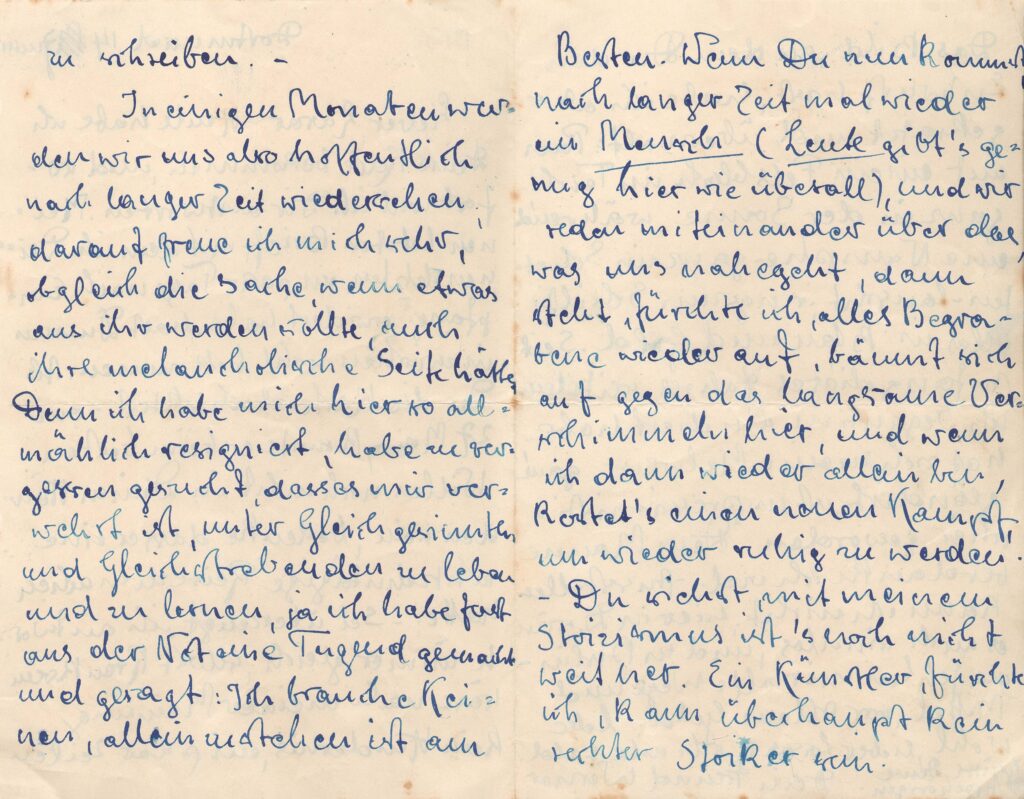 zu schreiben. –
In einigen Monaten wer-
den wir uns also hoffentlich
nach langer Zeit wiedersehen,
darauf freue ich mich sehr,
obgleich die Sache, wenn etwas
aus ihr werden sollte, auch
ihre melancholische Seite hätte,
Denn ich habe mich hier so all-
mählich resigniert, habe zu ver-
gessen gesucht, dass es mir ver-
wehrt ist, unter Gleichgesinnten
und Gleichstrebenden zu leben
und zu lernen, ja ich habe fast
aus der Not eine Tugend gemacht
und gesagt: Ich brauche Kei-
nen, allein zu stehen ist am
Besten. Wenn Du nun kommst
nach langer Zeit mal wieder
ein Mensch (Leute gibt's ge-
nug hier wie überall), und wir
reden miteinander über das,
was uns nahegeht, dann
steht, fürchte ich, alles Begra-
bene wieder auf, bäumt sich
auf gegen das langsame Ver-
schimmeln hier, und wenn
ich dann wieder allein bin,
kostet's einen neuen Kampf,
um wieder ruhig zu werden.
– Du siehst, mit meinem
Stoizismus ist's noch nicht
weit her. Ein Künstler, fürchte
ich, kann überhaupt kein
rechter Stoiker sein.